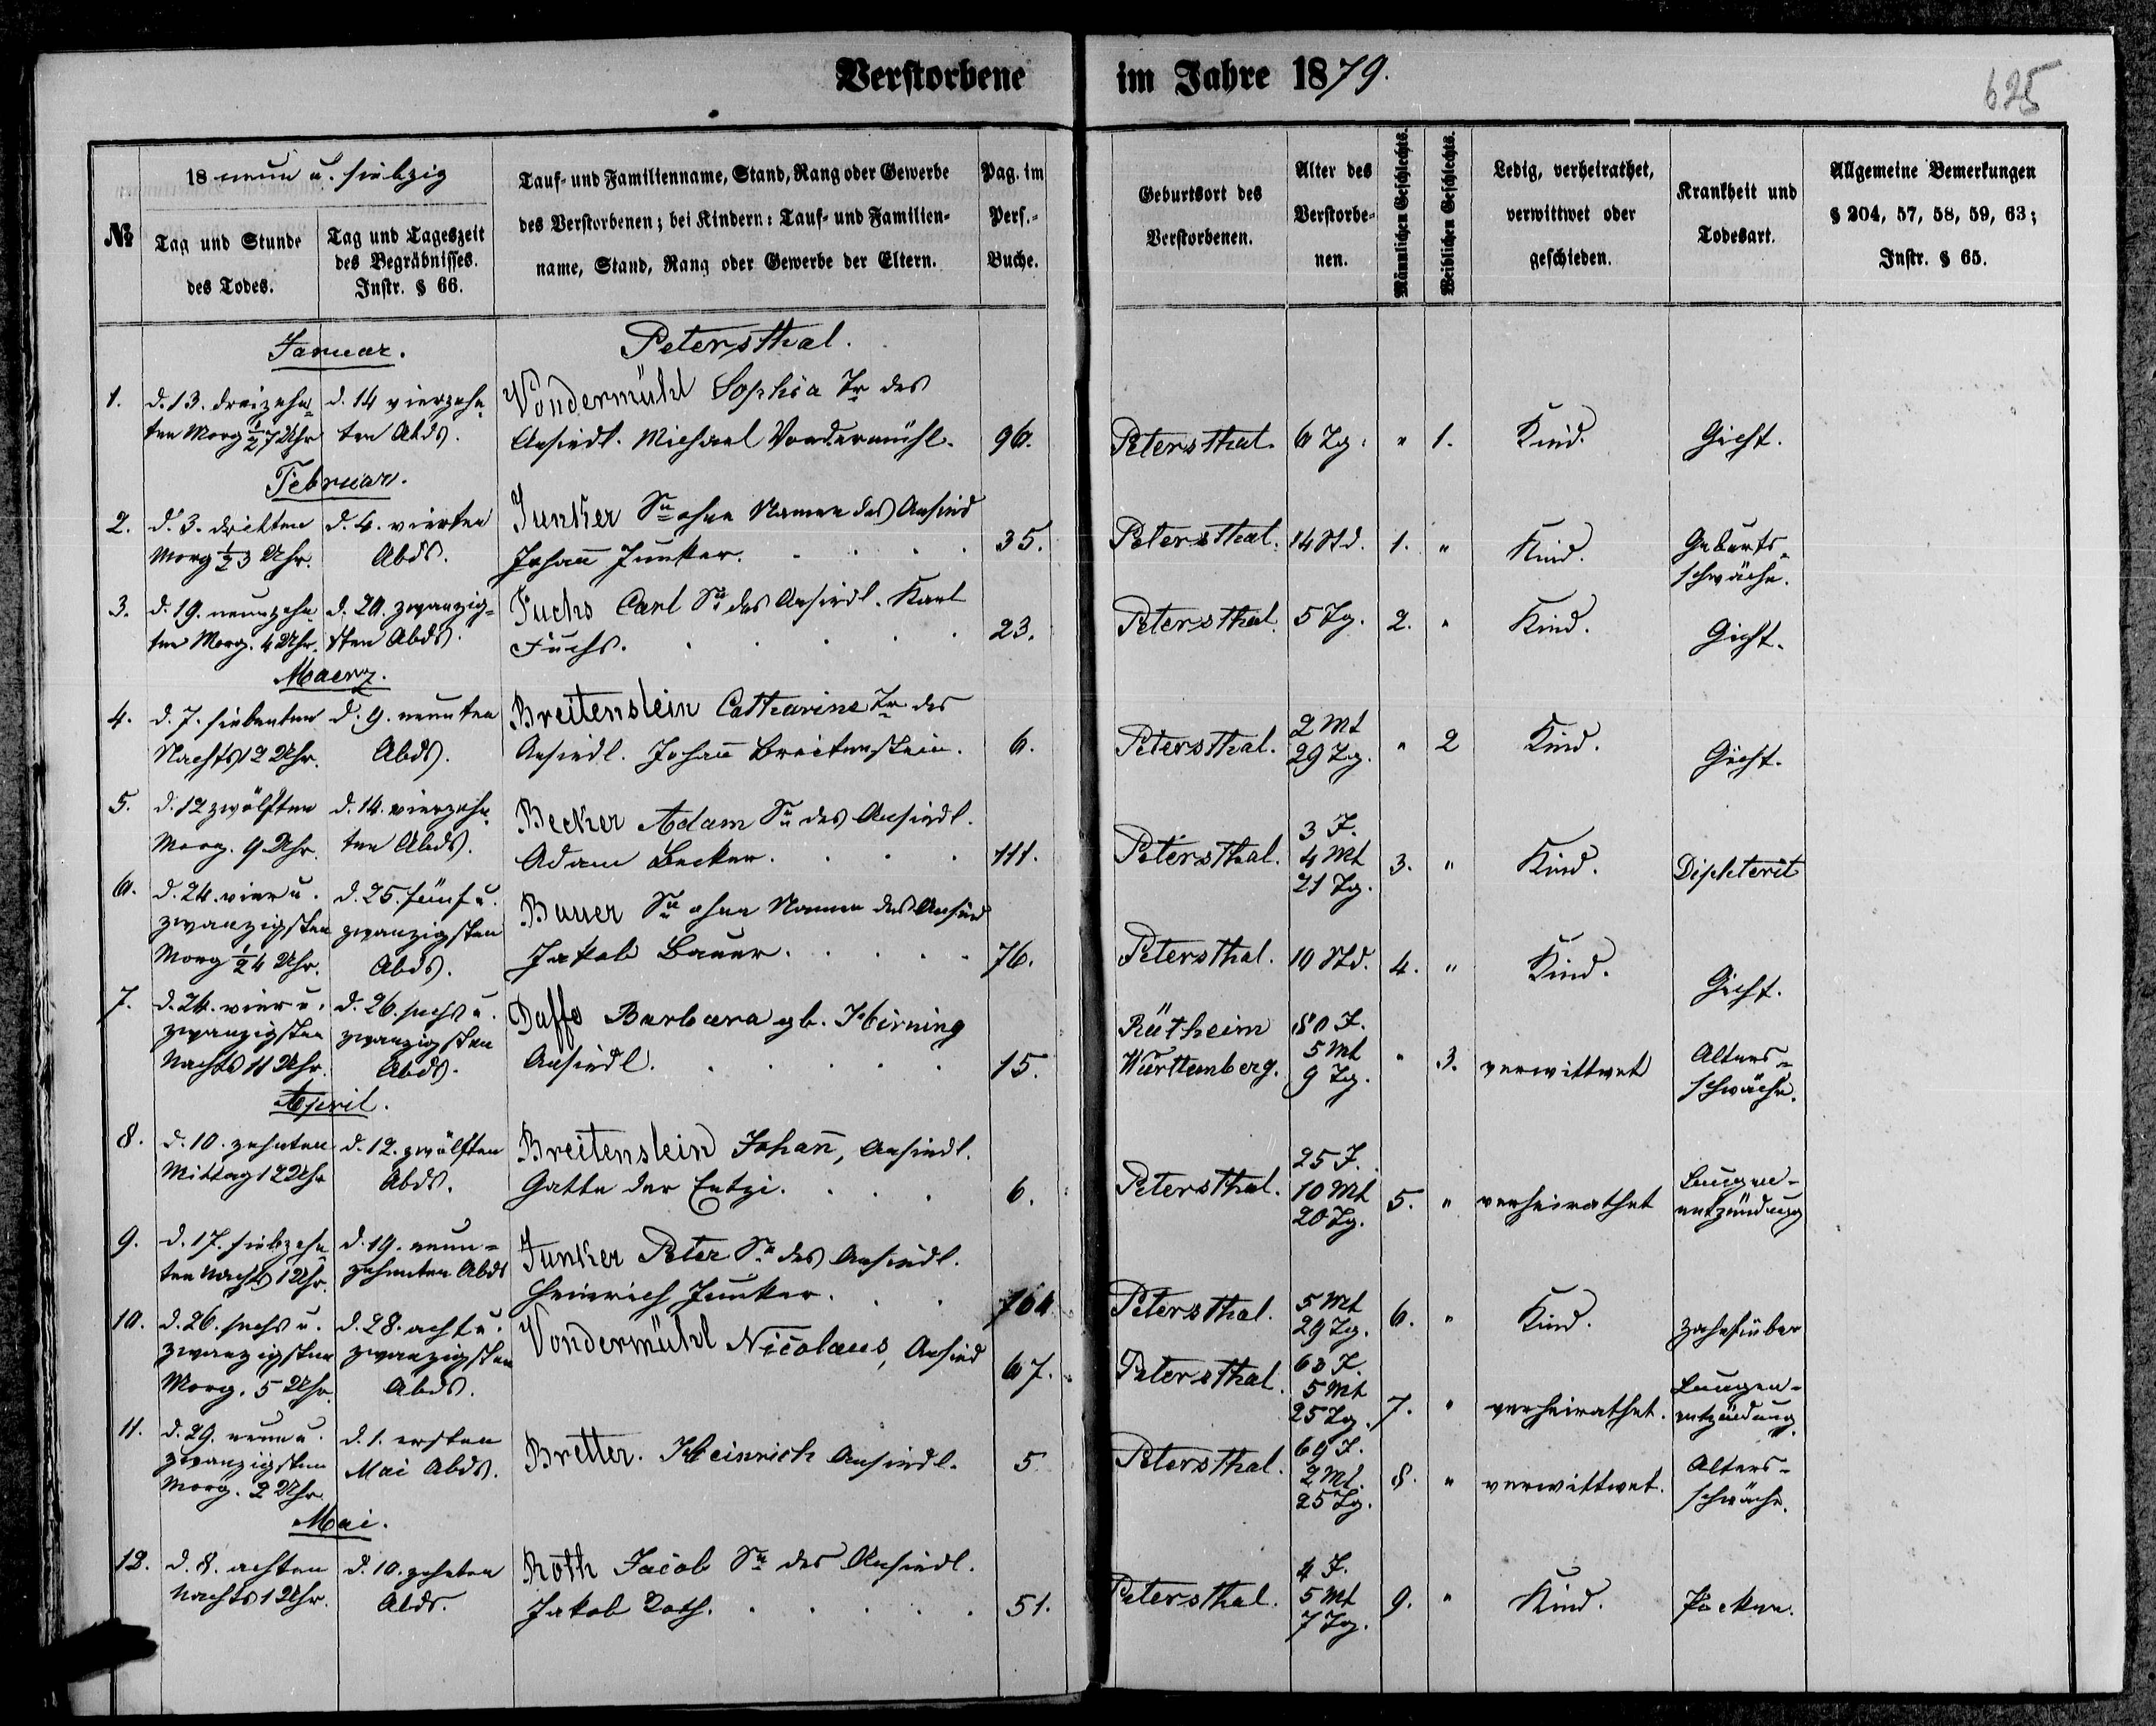 Verstorbene im Jahre 1879.
625
№
18 neun u. siebzig
Tag und Stunde
des Todes.
Tag und Tageszeit
des Begräbnisses.
Instr. § 66.
Tauf- und Familienname, Stand, Rang oder Gewerbe
des Verstorbenen; bei Kindern: Tauf- und Familien-
name, Stand, Rang oder Gewerbe der Eltern.
Pag. im
Pers.-
Buche.
Geburtsort des
Verstorbenen.
Alter des
Verstorbe-
nen.
Männlichen Geschlechts.
Weiblichen Geschlechts.
Ledig, verheirathet,
verwittwet oder
geschieden.
Krankheit und
Todesart.
Allgemeine Bemerkungen
§ 204, 57, 58, 59, 63;
Instr. § 65.
Januar. Petersthal.
1. d. 13. dreizehn- d. 14 vierzehn- Vondermühl Sophia Tr des
ten Morg ½ 7 Uhr ten Abds. Ansiedl. Michael Vondermühl. 96. Petersthal. 6 Tg. " 1. Kind. Gicht.
Februar.
2. d. 3. dritten d. 4. vierten Junker Sn ohne Namen des Ansied
Morg ½ 3 Uhr. Abds. Johann Junker. 35. Petersthal. 14 Std. 1. " Kind. Geburts-
schwäche.
3. d. 19. neunzehn- d. 20. zwanzig- Fuchs Carl Sn des Ansiedl. Karl
ten Morg. 4 Uhr. sten Abds. Fuchs. 23. Petersthal. 5 Tg. 2. " Kind. Gicht.
Maerz.
4. d. 7. siebenten d. 9. neunten Breitenstein Catharine Tr des
Nachts 12 Uhr. Abds. Ansiedl. Johann Breitenstein. 6. Petersthal. 2 Mt
29 Tg. " 2 Kind. Gicht.
5. d. 12 zwölften d. 14. vierzehn- Becker Adam Sn des Ansiedl.
Morg. 9 Uhr. ten Abds. Adam Becker. 111. Petersthal. 3 J.
4 Mt
21 Tg. 3. " Kind. Diphterit
6. d. 24. vier u. d. 25. fünf u. Bauer Sn ohne Namen des Ansied
zwanzigsten zwanzigsten
Morg ½ 4 Uhr. Abds. Jakob Bauer. 76. Petersthal. 10 Std. 4. " Kind. Gicht.
7. d. 24. vier u. d. 26. sechs u. Daffe Barbara gb. Hirning
zwanzigsten zwanzigsten
Nachts 11 Uhr. Abds. Ansiedl. 15. Rütheim
Württemberg. 80 J.
5 Mt
9 Tg. " 3. verwittwet Alters-
schwäche.
April.
8. d. 10. zehnten d. 12. zwölften Breitenstein Johann, Ansiedl.
Mittag 12 Uhr Abds. Gatte der 6. Petersthal. 25 J.
10 Mt
20 Tg. 5. " verheirathet Lungen-
entzündung
9. d. 17. siebzehn- d. 19. neun- Junker Peter Sn des Ansiedl.
ten Nachts 1 Uhr. zehnten Abds Heinrich Junker. 164. Petersthal. 5 Mt
29 Tg. 6. " Kind. Zahnfieber
10. d. 26. sechs u. d. 28. acht u. Vondermühl Nicolaus, Ansied
zwanzigsten zwanzigsten
Morg. 5 Uhr. Abds. 67. Petersthal. 63 J.
5 Mt
25 Tg. 7. " verheirathet. Lungen-
entzündung.
11. d. 29. neun u. d. 1. ersten
zwanzigsten Mai Abds. Bretter. Heinrich Ansiedl. 5
Morg. 2 Uhr. Petersthal. 69 J.
2 Mt.
25 Tg. 8. " verwittwet. Alters-
schwäche.
Mai.
12. d. 8. achten d. 10. zehnten Roth Jacob Sn des Ansiedl.
Nachts 1 Uhr. Abds. Jakob Roth. 51. Petersthal. 4 J.
5 Mt
7 Tg. 9. " Kind. Pocken.